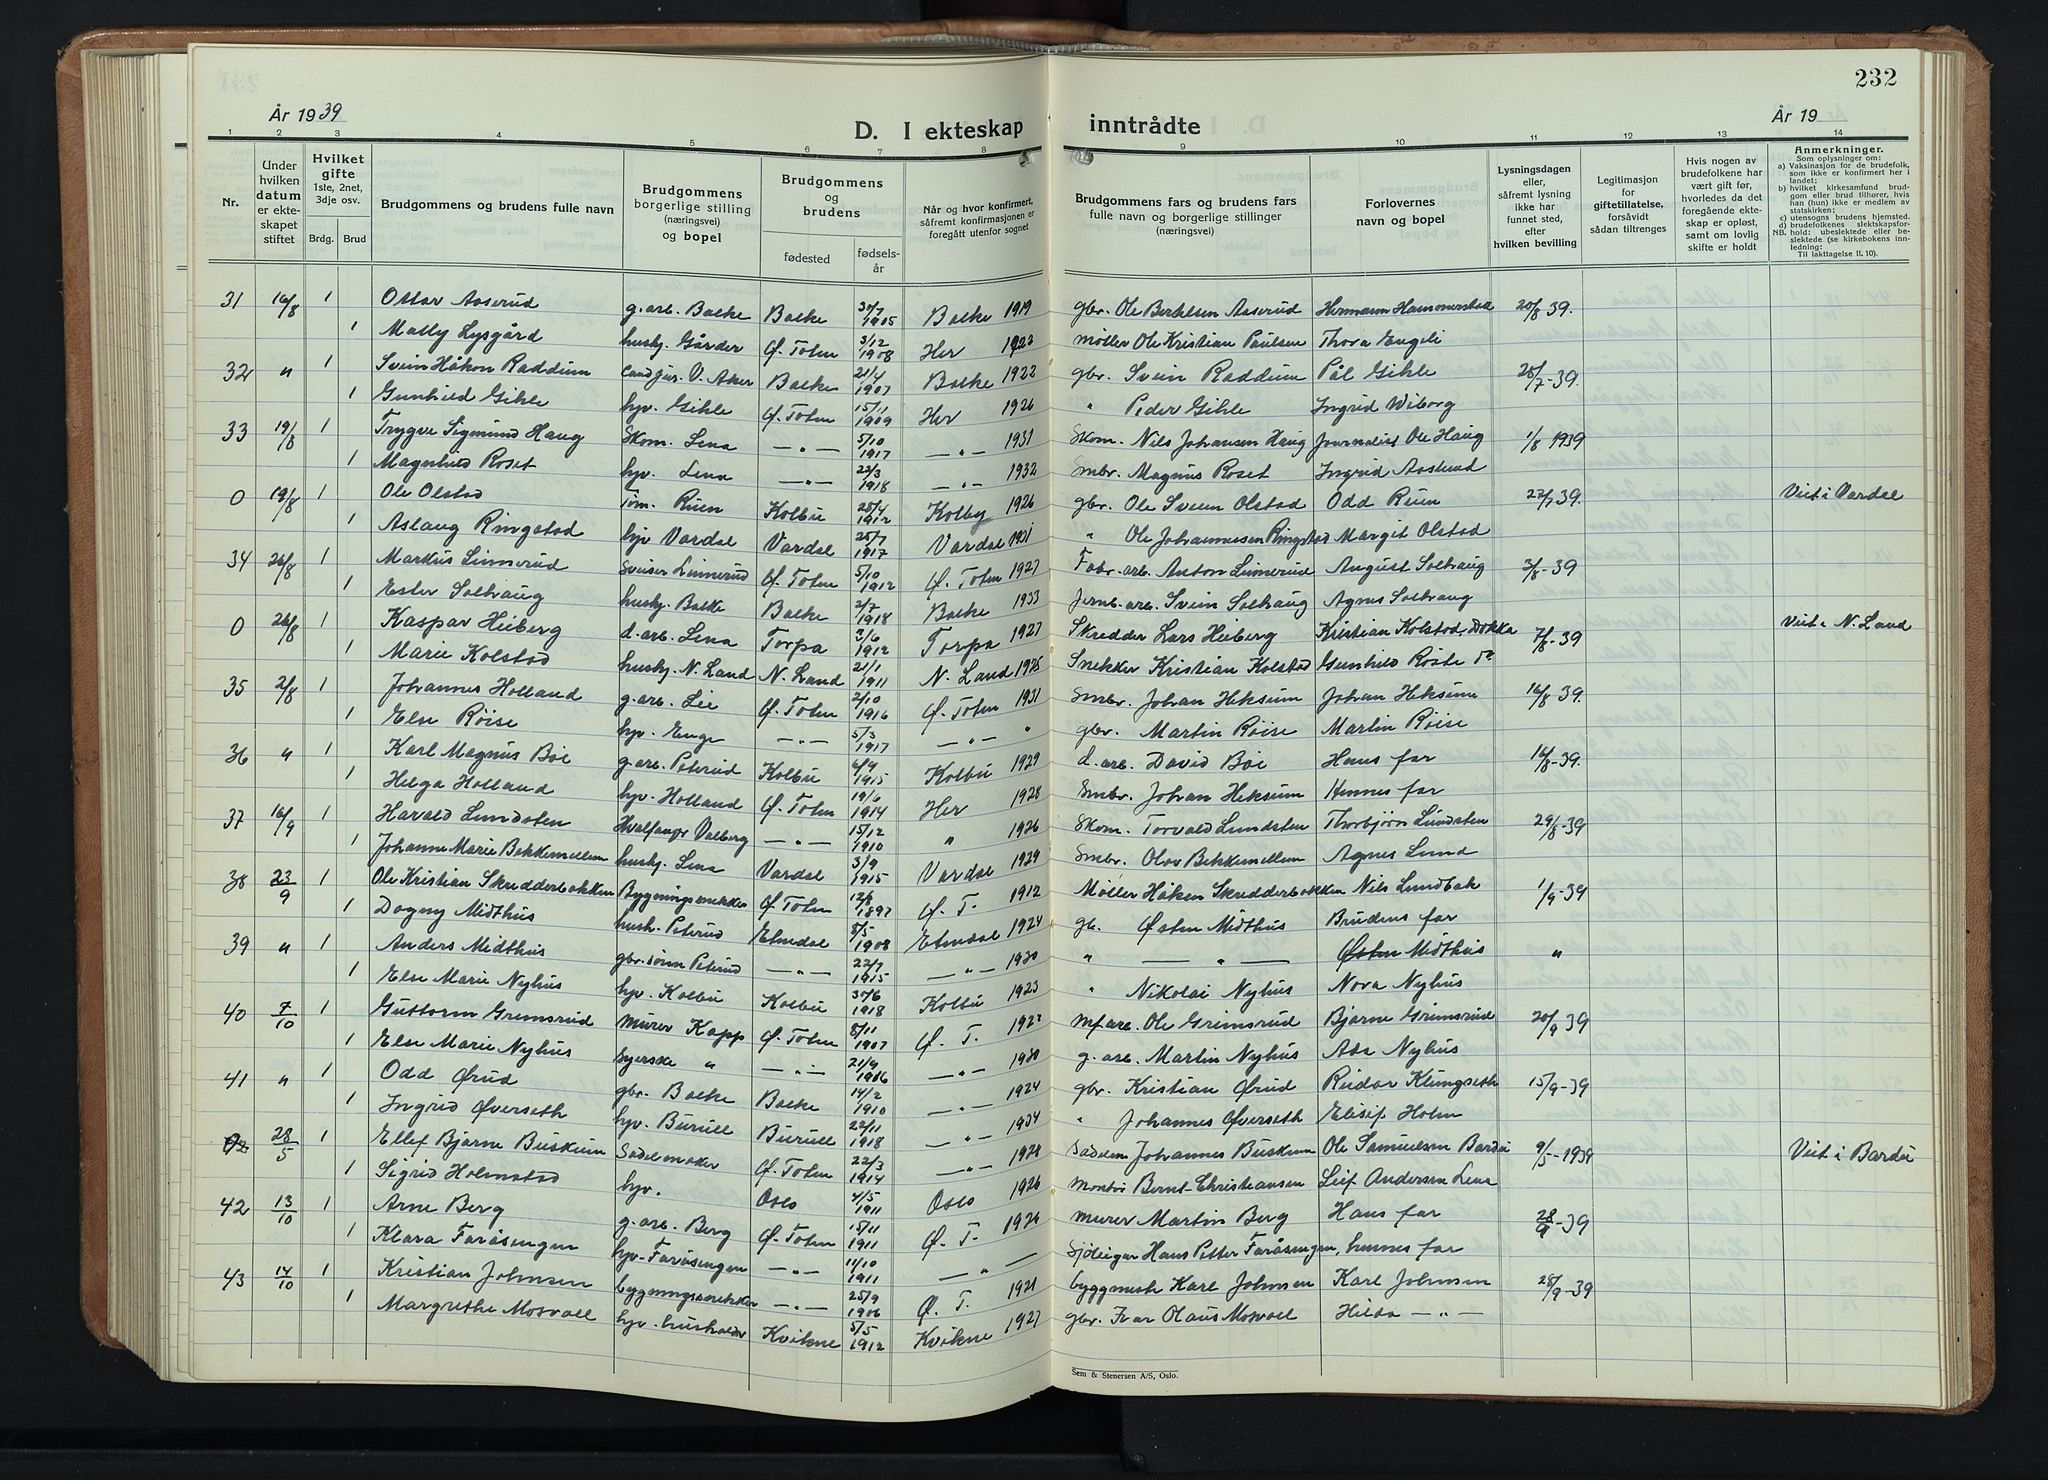 232
År 1939
D. I ekteskap inntrådte
År 19
1 2 3 4 5 6 7 8 9 10 11 12 13 14
Nr.
Under hvilken datum er ekteskapet stiftet
Hvilket gifte 1ste, 2net, 3dje osv.
Brdg. Brud
Brudgommens og brudens fulle navn
Brudgommens borgerlige stilling (næringsvei) og bopel
Brudgommens og brudens
fødested
fødselsår
Når og hvor konfirmert, såfremt konfirmasjonen er foregått utenfor sognet
Brudgommens fars og brudens fars fulle navn og borgerlige stillinger (næringsvei)
Forlovernes navn og bopel
Lysningsdagen eller, såfremt lysning ikke har funnet sted, efter hvilken bevilling
Legitimasjon for giftetillatelse, forsåvidt sådan tiltrenges
Hvis nogen av brudefolkene har vært gift før, hvorledes da det foregående ekteskap er opløst, samt om lovlig skifte er holdt
Anmerkninger.
Som oplysninger om:
a) Vaksinasjon for de brudefolk, som ikke er konfirmert her i landet:
b) hvilket kirkesamfund brudgom eller brud tilhører, hvis han (hun) ikke er medlem av statskirken:
c) utensogns brudens hjemsted.
d) brudefolkenes slektskapsforhold: ubeslektede eller beslektede (se kirkebokens innledning:
NB.
Til iakttagelse II. 10).
31 16/8 1 Ottar Aaserud g.arb. Balke Balke 30/7 1905 Balke 1919 gbr. Ole Bertelsen Aaserud Hermann Hammerstad 20/8 39.
1 Mally Lysgård husbj. Gårder Ø. Toten 3/12 1908 Her 1923 møller Ole Kristian Paulsen Thora Engeli
32 " 1 Svein Håkon Raddum cand.jur. V. Aker Balke 21/4 1907 Balke 1922 gbr. Svein Raddum Pål Gihle 25/7-39.
1 Gunhild Gihle hjv. Gihle Ø. Toten 15/11 1909 Her 1926 " Peder Gihle Ingrid Wiborg
33 19/8 1 Trygve Sigmund Haug Skom. Lena — " — 5/10 1917 — " — 1931 Skom. Nils Johansen Haug Journalist Ole Haug 1/8 1939
1 Magnhild Roset hjv. Lena — " — 22/3 1918 — " — 1932 Smbr. Magnus Roset Ingrid Aaslund
0 19/8 1 Ole Olstad Tøm. Ruen Kolbu 25/4 1912 Kolby 1926 gbr. Ole Sveen Olstad Odd Ruen 27/7 39. Viet i Vardal
1 Aslaug Ringstad hjv Vardal Vardal 25/7 1917 Vardal 1931 " Ole Johannessen Ringstad Margit Olstad
34 26/8 1 Markus Linnerud Sveiser Linnerud Ø. Toten 5/10 1912 Ø. Toten 1927 Fabr.arb. Anton Linnerud August Solhaug 3/8-39
1 Ester Solhaug husbj. Balke Balke 2/7 1918 Balke 1933 Jernb.arb. Svein Solhaug Agnes Solhaug
0 26/8 1 Kaspar Heiberg d.arb. Lena Torpa 3/6 1912 Torpa 1927 Skredder Lars Heiberg Kristian Kolstad, Dokka 7/8-39 Viet i N. Land
1 Marie Kolstad husbj. N. Land N. Land 21/1 1911 N. Land 1925 Snekker Kristian Kolstad Gunhild Røste do
35 2/8 1 Johannes Holland g.arb. Lie Ø. Toten 2/10 1916 Ø. Toten 1931 Smbr. Johan Heksum Johan Heksum 16/8-39.
1 Else Røise hjv. Enge — " — 5/3 1917 — " — " gbr. Martin Røise Martin Røise
36 " 1 Karl Magnus Bøe g.arb. Peterud Kolbu 6/9 1915 Kolbu 1929 d.arb. David Bøe Hans far 16/8-39.
1 Helga Holland hjv. Holland Ø. Toten 19/6 1914 Her 1928 Smbr. Johan Heksum Hennes far
37 16/9 1 Harald Lundsten Hvalfanger Valberg — " — 15/12 1910 " 1926 Skom. Torvald Lundsten Thorbjørn Lundsten 29/8-39
1 Johanne Marie Bekkemellem husbj. Lena Vardal 3/9 1915 Vardal 1929 Smbr. Olav Bekkemellem Agnes Lund
38 23/9 1 Ole Kristian Skredderbakken Bygningssnekker Ø. Toten 12/8 1897 Ø. T. 1912 Møller Håken Skredderbakken Nils Lundbak 1/9-39
1 Dagny Midthus hush. Peterud Etnedal 8/5 1908 Etnedal 1924 gb. Østen Midthus Brudens far
39 " 1 Anders Midthus gbr.sønn Peterud — " — 22/7 1915 — " — 1930 " — " — Østen Midthus "
1 Else Marie Nyhus hjv. Kolbu Kolbu 30/6 1918 Kolbu 1923 " Nikolai Nyhus Nora Nyhus
40 7/10 1 Guttorm Grimsrud murer Kapp Ø. Toten 8/11 1907 Ø. T. 1922 mf.arb. Ole Grimsrud Bjarne Grimsrud 20/9 39
1 Else Marie Nyhus Syerske " — " — 21/9 1916 — " — 1930 g.arb. Martin Nyhus Ada Nyhus
41 " 1 Odd Ørud gbr. Balke Balke 14/2 1910 — " — 1924 gbr. Kristian Ørud Reidar Klungseth 15/9-39
1 Ingrid Øverseth hjv. Burull Burull 22/11 1918 — " — 1934 " Johannes Øverseth Elisif Holm
28/5 1 Ellef Bjarne Buskum Sadelmaker Ø. Toten 22/3 1914 — " — 1928 Sadelm Johannes Buskum Ole Samuelsen Bardu 9/5-1939 Viet i Bardu
1 Sigrid Holmstad hjv. Oslo 4/5 1911 Oslo 1926 Montør Bernt Christiansen Leif Andersen Lena
42 13/10 1 Arne Berg g.arb. Berg Ø. Toten 15/11 1911 Ø. T. 1926 murer Martin Berg Hans far 28/9-39
1 Klara Faråsengen hjv. Faråsengen — " — 11/10 1911 — " — Sjøleigar Hans Petter Faråsengen, hennes far
43 14/10 1 Kristian Johnsen bygningssnekker — " — 25/9 1906 Ø. T. 1921 byggmest Karl Johnsen Karl Johnsen 28/9-39
1 Margrethe Mosvoll hjv. husholder Kvikne 5/5 1912 Kvikne 1927 gbr. Ivar Olaus Mosvoll Hilda — " —
Sem & Stenersen A/S, Oslo.